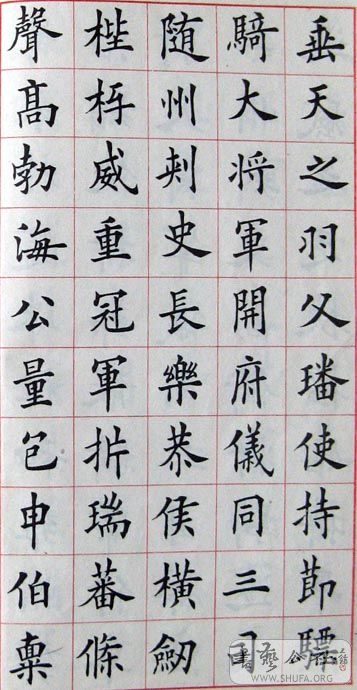 垂天之羽父璠使持節驃
騎大将軍開府儀同三司
随州刾史長樂恭侯橫劒
梐枑威重冠軍析瑞蕃條
聲髙勃海公量包申伯稟
書藝公社
WWW.SHUFA.ORG